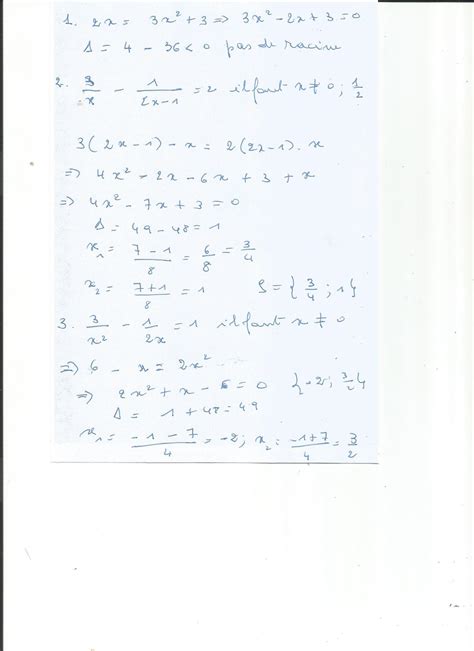 1. 2x = 3x² + 3 => 3x² - 2x + 3 = 0
Δ = 4 - 36 < 0 pas de racine
2. 3/x - 1/(2x-1) = 2 il faut x ≠ 0 ; 1/2
3(2x-1) - x = 2(2x-1). x
=> 4x² - 2x - 6x + 3 + x
=> 4x² - 7x + 3 = 0
Δ = 49 - 48 = 1
x₁ = (7-1)/8 = 6/8 = 3/4
x₂ = (7+1)/8 = 1 S = { 3/4 ; 1 }
3. 3/x² - 1/2x = 1 il faut x ≠ 0
=> 6 - x = 2x²
=> 2x² + x - 6 = 0 {-2 ; 3/2}
Δ = 1 + 48 = 49
x₁ = (-1-7)/4 = -2 ; x₂ = (-1+7)/4 = 3/2